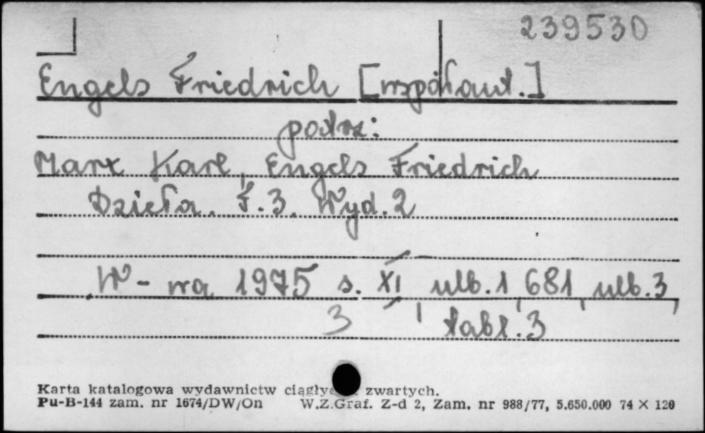 239530
Engels Friedrich [współaut.]
patrz:
Marx Karl, Engels Friedrich
Dzieła. T.3. Wyd.2
W-wa 1975 s. XI, nlb.1, 681, nlb.3,
3 tabl.3
Karta katalogowa wydawnictw zwartych.
Pu-B-144 zam. nr 1674/DW/On W.Z.Graf. Z-d 2, Zam. nr 988/77, 5.650.000 74 X 120